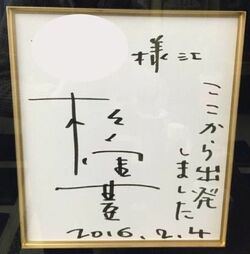 様江
ここから出発
しました
2016.2.4